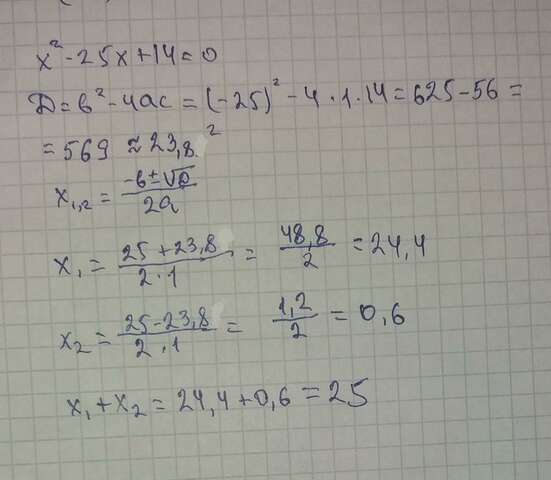 x² - 25x + 14 = 0
Д = b² - 4ac = (-25)² - 4 · 1 · 14 = 625 - 56 =
= 569 ≈ 23,8²
x₁,₂ = (-b ± √D) / 2a
x₁ = (25 + 23,8) / (2 · 1) = 48,8 / 2 = 24,4
x₂ = (25 - 23,8) / (2 · 1) = 1,2 / 2 = 0,6
x₁ + x₂ = 24,4 + 0,6 = 25